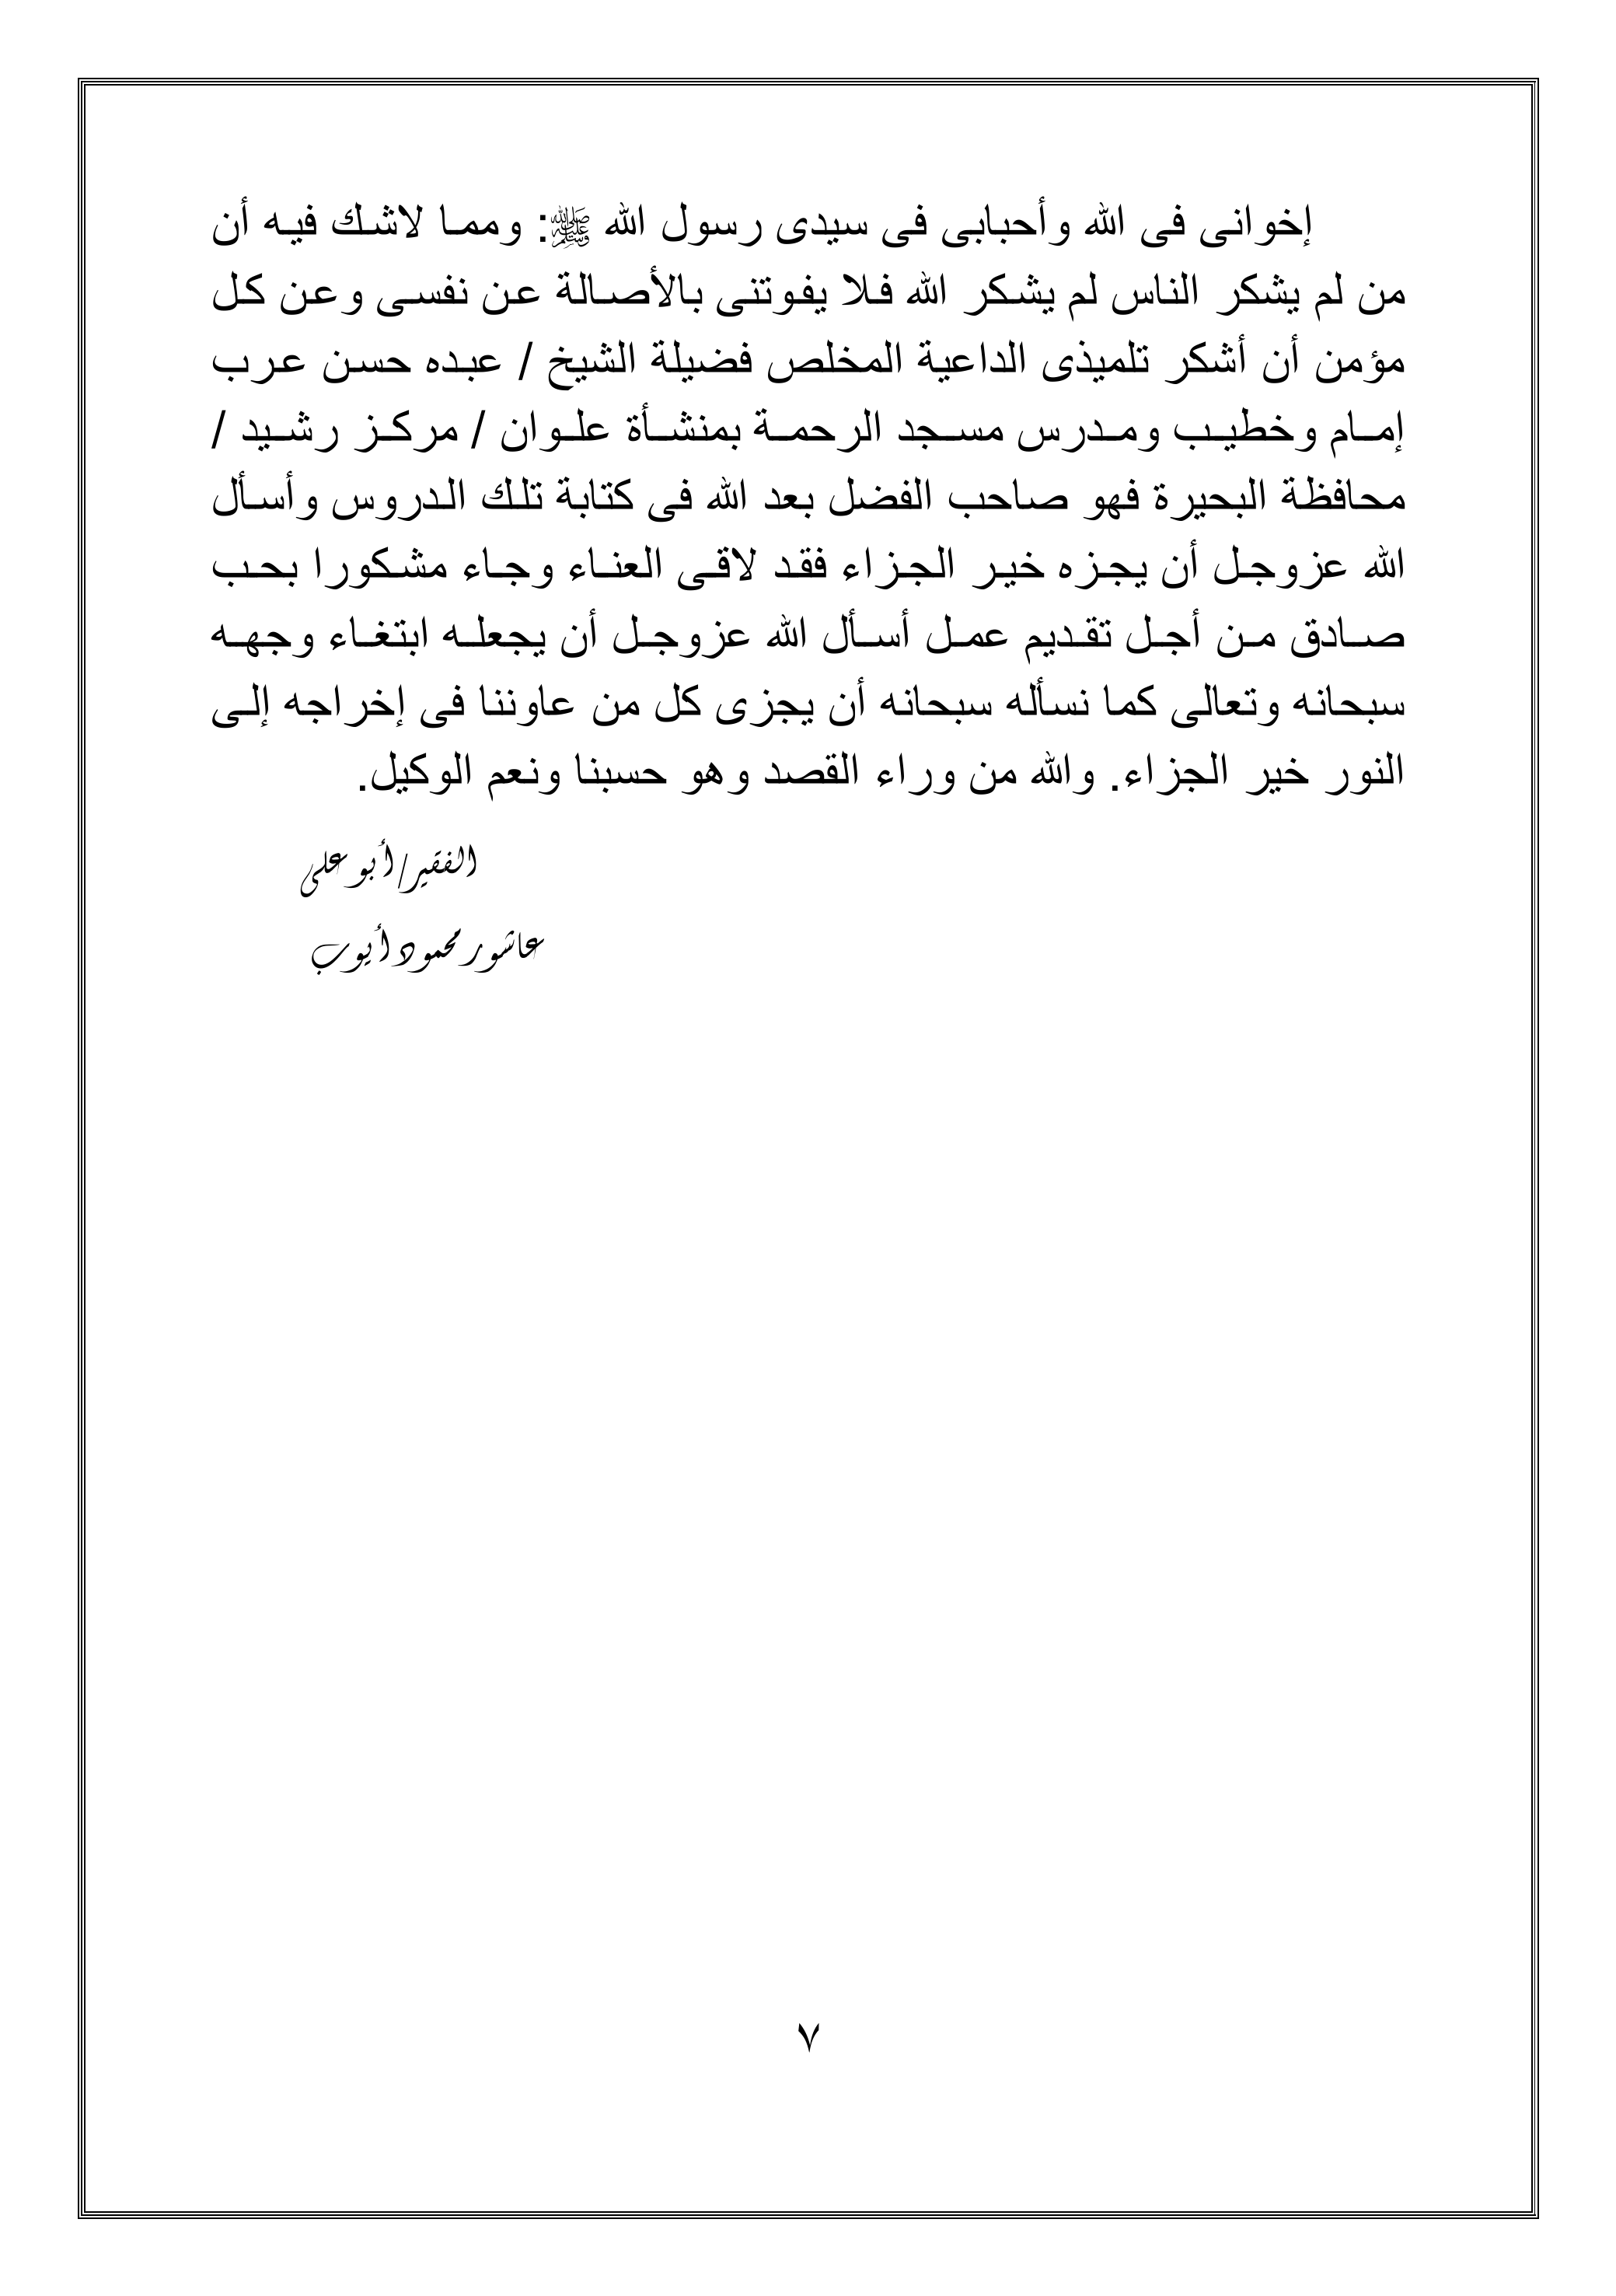 إخوانى فى الله وأحبابى فى سيدى رسول الله ﷺ: ومما لاشك فيه أن
من لم يشكر الناس لم يشكر الله فلا يفوتنى بالأصالة عن نفسى وعن كل
مؤمن أن أشكر تلميذى الداعية المخلص فضيلة الشيخ / عبده حسن عرب
إمام وخطيب ومدرس مسجد الرحمة بمنشأة علوان / مركز رشيد /
محافظة البحيرة فهو صاحب الفضل بعد الله فى كتابة تلك الدروس وأسأل
الله عزوجل أن يجزه خير الجزاء فقد لاقى العناء وجاء مشكورا بحب
صادق من أجل تقديم عمل أسأل الله عزوجل أن يجعله ابتغاء وجهه
سبحانه وتعالى كما نسأله سبحانه أن يجزى كل من عاوننا فى إخراجه إلى
النور خير الجزاء. والله من وراء القصد وهو حسبنا ونعم الوكيل.
الفقير/ أبو على
عاشور محمود أيوب
٧